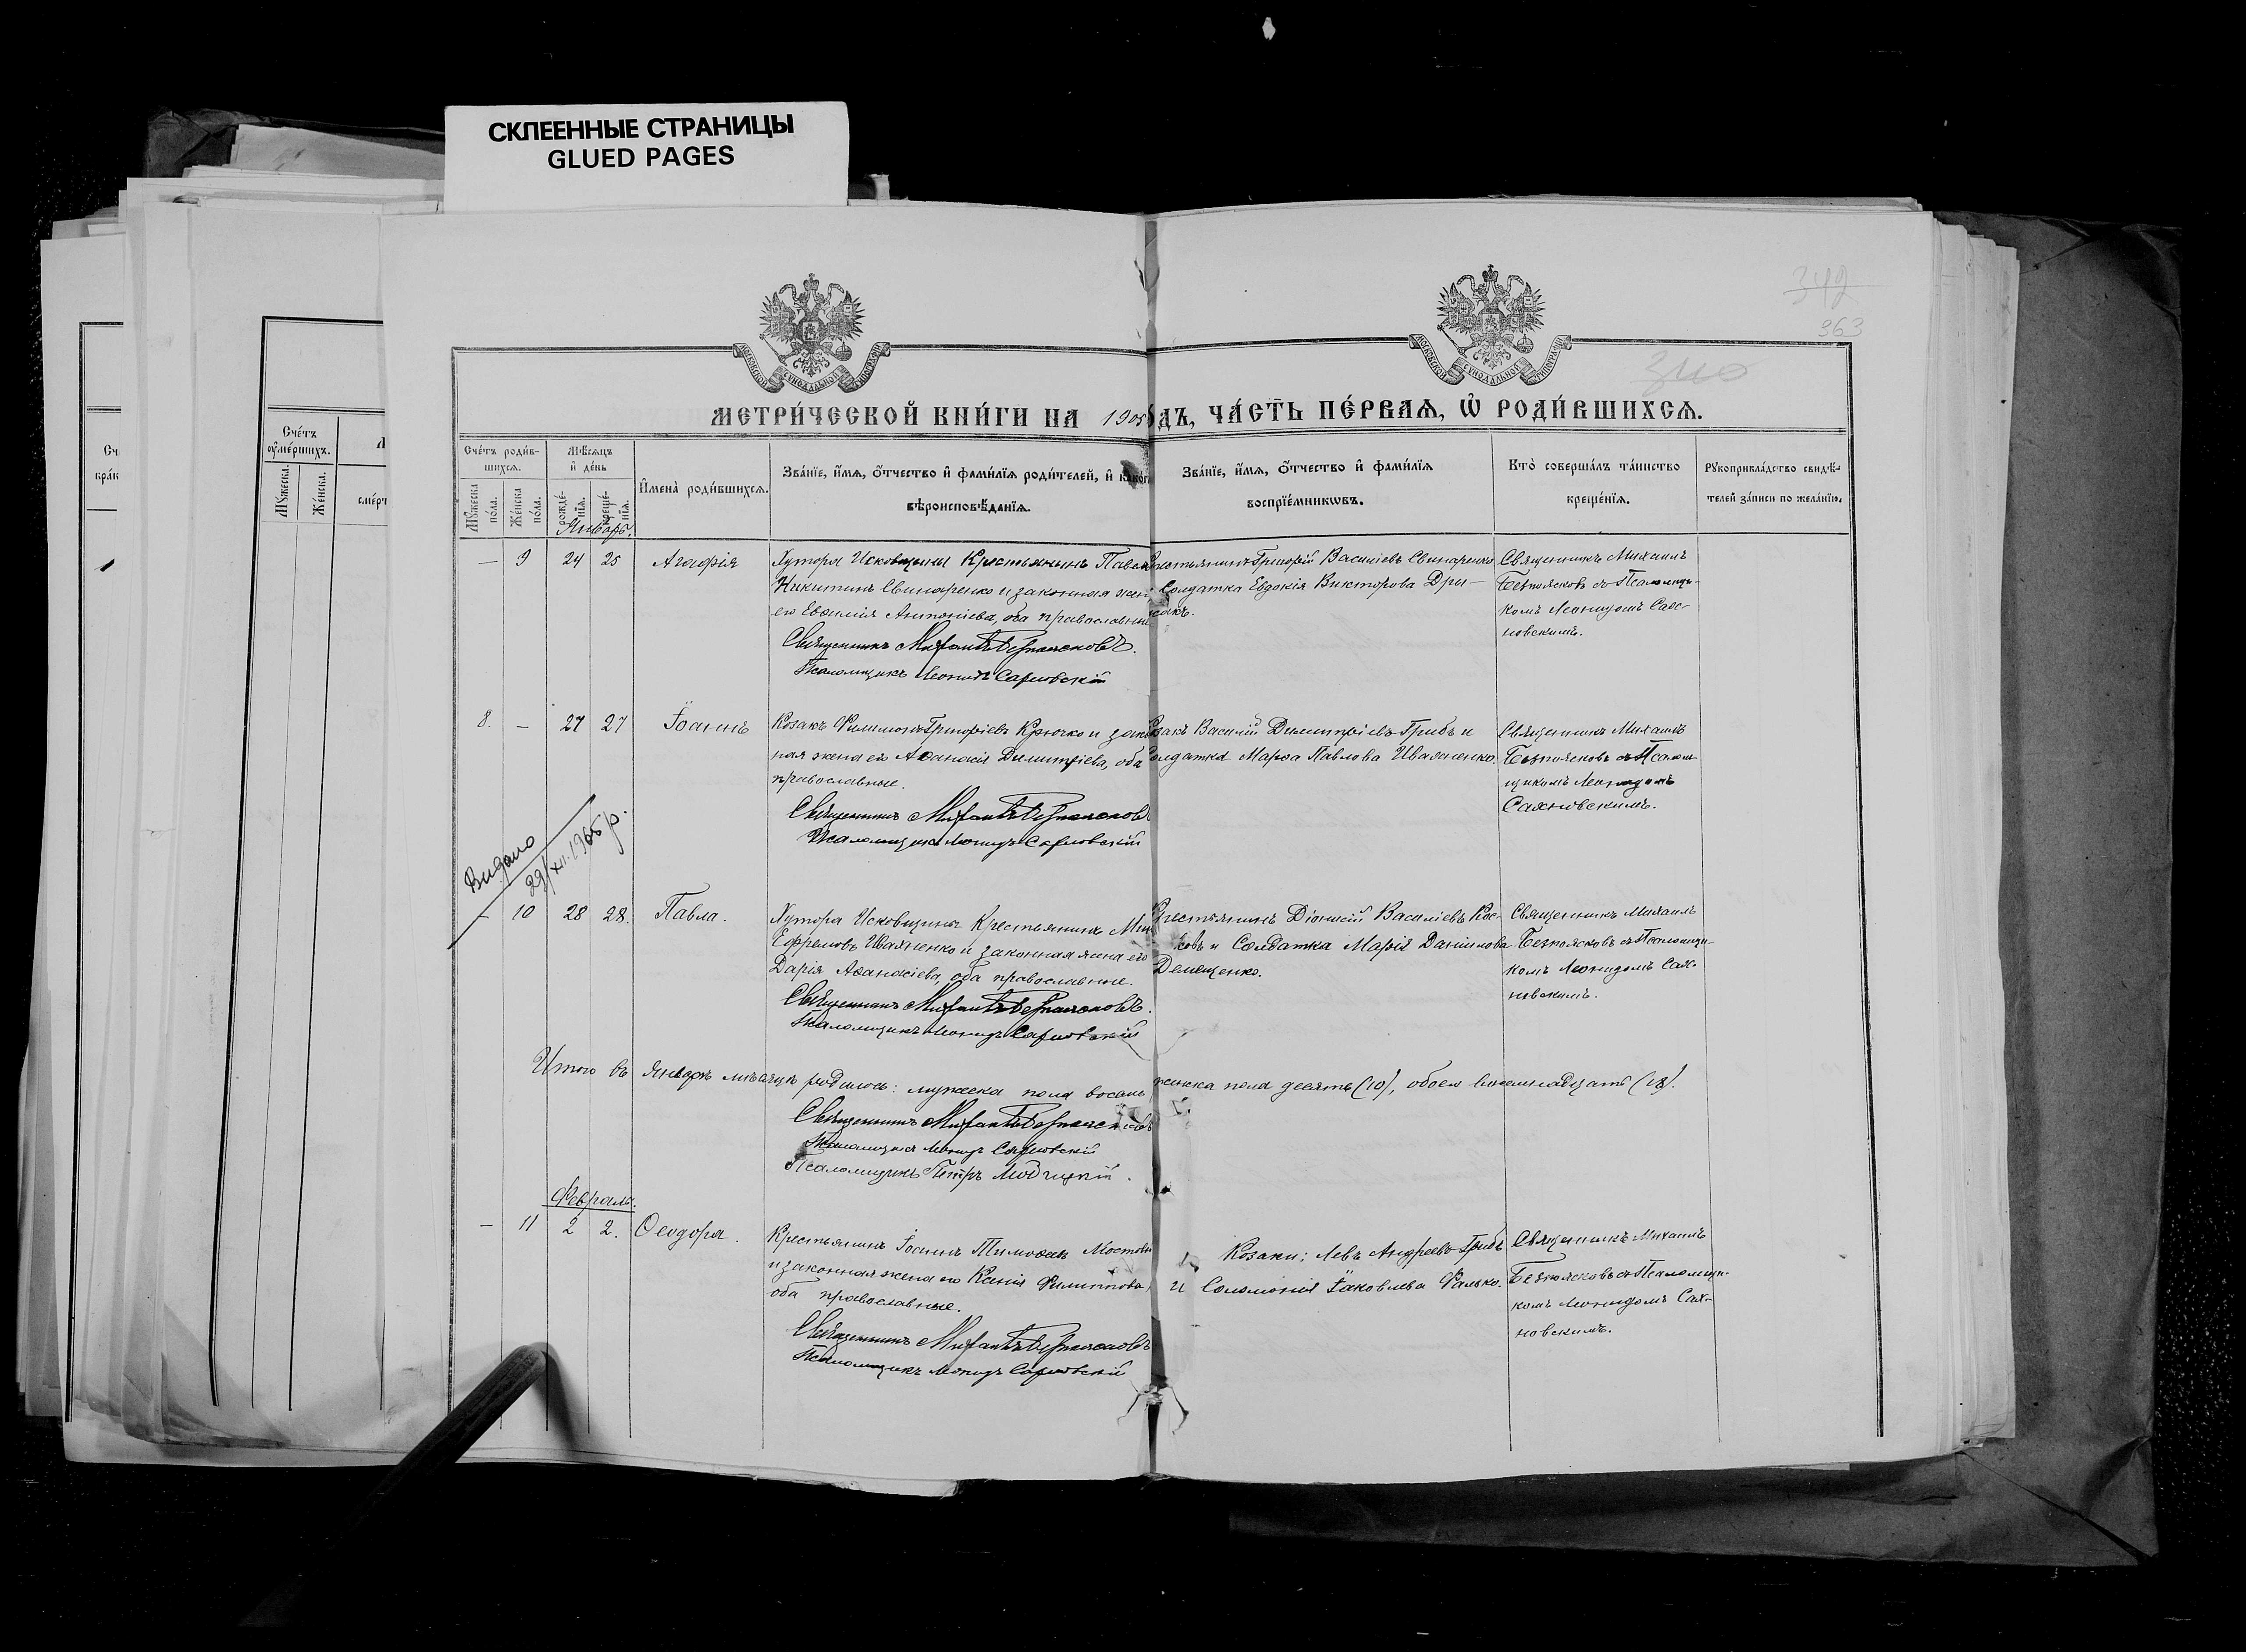 СКЛЕЕННЫЕ СТРАНИЦЫ
GLUED PAGES
342
363
МОСКОВСКОЙ СѴНОДАЛЬНОЙ ТИПОГРАФІИ
МОСКОВСКОЙ СѴНОДАЛЬНОЙ ТИПОГРАФІИ
МЕТРИ́ЧЕСКОЙ КНИ́ГИ НА 1905 ДЪ, ЧА́СТЬ ПЕ́РВАЯ, Ѡ РОДИ́ВШИХСЯ.
Сче́тъ роди́в-
шихся.
Мꙋ́жеска по́ла.
Же́нска по́ла.
Мѣ́сяцъ
и҆ де́нь
рожде́-
нїя.
креще́-
нїя.
И҆мена̀ роди́вшихся.
Зва́нїе, и҆́мя, ѻ҆́тчество и҆ фами́лїя роди́телей, и҆ како́гѡ
вѣроисповѣ́данїя.
Зва́нїе, и҆́мя, ѻ҆́тчество и҆ фами́лїя
воспрїе́мникѡвъ.
Кто̀ соверша́лъ та́инство
креще́нїя.
Рꙋкоприкла́дство свидѣ́-
телей за́писи по жела́нїю.
Сче́тъ
ᲂу҆ме́ршихъ.
Мꙋ́жеска.
Же́нска.
Январь.
— 9 24 25 Агафія
Хутора Исковщины Крестьянинъ Павелъ
Никитинъ Свинаренко и законная жена
его Евфимія Антоніева, оба православные
Священникъ Михаилъ Безпоясковъ.
Псаломщикъ Леонидъ Сахновскій
Крестьянинъ Григорій Василіевъ Свинаренко
Солдатка Евдокія Викторова Дри-
Священникъ Михаилъ
Безпоясковъ съ Псаломщи-
комъ Леонидомъ Сах-
новскимъ.
8. — 27 27 Іоаннъ
Козакъ Филимонъ Григоріевъ Крючко и закон
ная жена его Аѳанасія Димитріева, оба
православные.
Священникъ Михаилъ Безпоясковъ
Псаломщикъ Леонидъ Сахновскій
Козакъ Василій Димитріевъ Грибъ и
Солдатка Марѳа Павлова Иваненко.
Священникъ Михаилъ
Безпоясковъ съ Псалом-
щикомъ Леонидомъ
Сахновскимъ.
Видано
29/XI.1965 р.
— 10 28 28. Павла.
Хутора Исковщины Крестьянинъ
Ефремовъ Иваненко и законная жена его
Дарія Аѳанасіева, оба православные.
Священникъ Михаилъ Безпоясковъ.
Псаломщикъ Леонидъ Сахновскій
Крестьянинъ Діонисій Василіевъ Кос-
ковъ и Солдатка Марія Даніилова
Демещенко.
Священникъ Михаилъ
Безпоясковъ съ Псаломщи-
комъ Леонидомъ Сах-
новскимъ.
Итого въ Январѣ мѣсяцѣ родилось: мужеска пола восемь женска пола десять (10), обоего восемнадцать (18).
Священникъ Михаилъ Безпоясковъ
Псаломщикъ Леонидъ Сахновскій
Псаломщикъ Петръ
Февраль.
— 11 2 2. Ѳеодора.
Крестьянинъ Іоаннъ Тимоѳеевъ
и законная жена его Ксенія Филиппова,
оба православные.
Священникъ Михаилъ Безпоясковъ
Псаломщикъ Леонидъ Сахновскій
Козаки: Левъ Андреевъ Грибъ
и Соломонія Іаковлева Фалько.
Священникъ Михаилъ
Безпоясковъ съ Псаломщи-
комъ Леонидомъ Сах-
новскимъ.